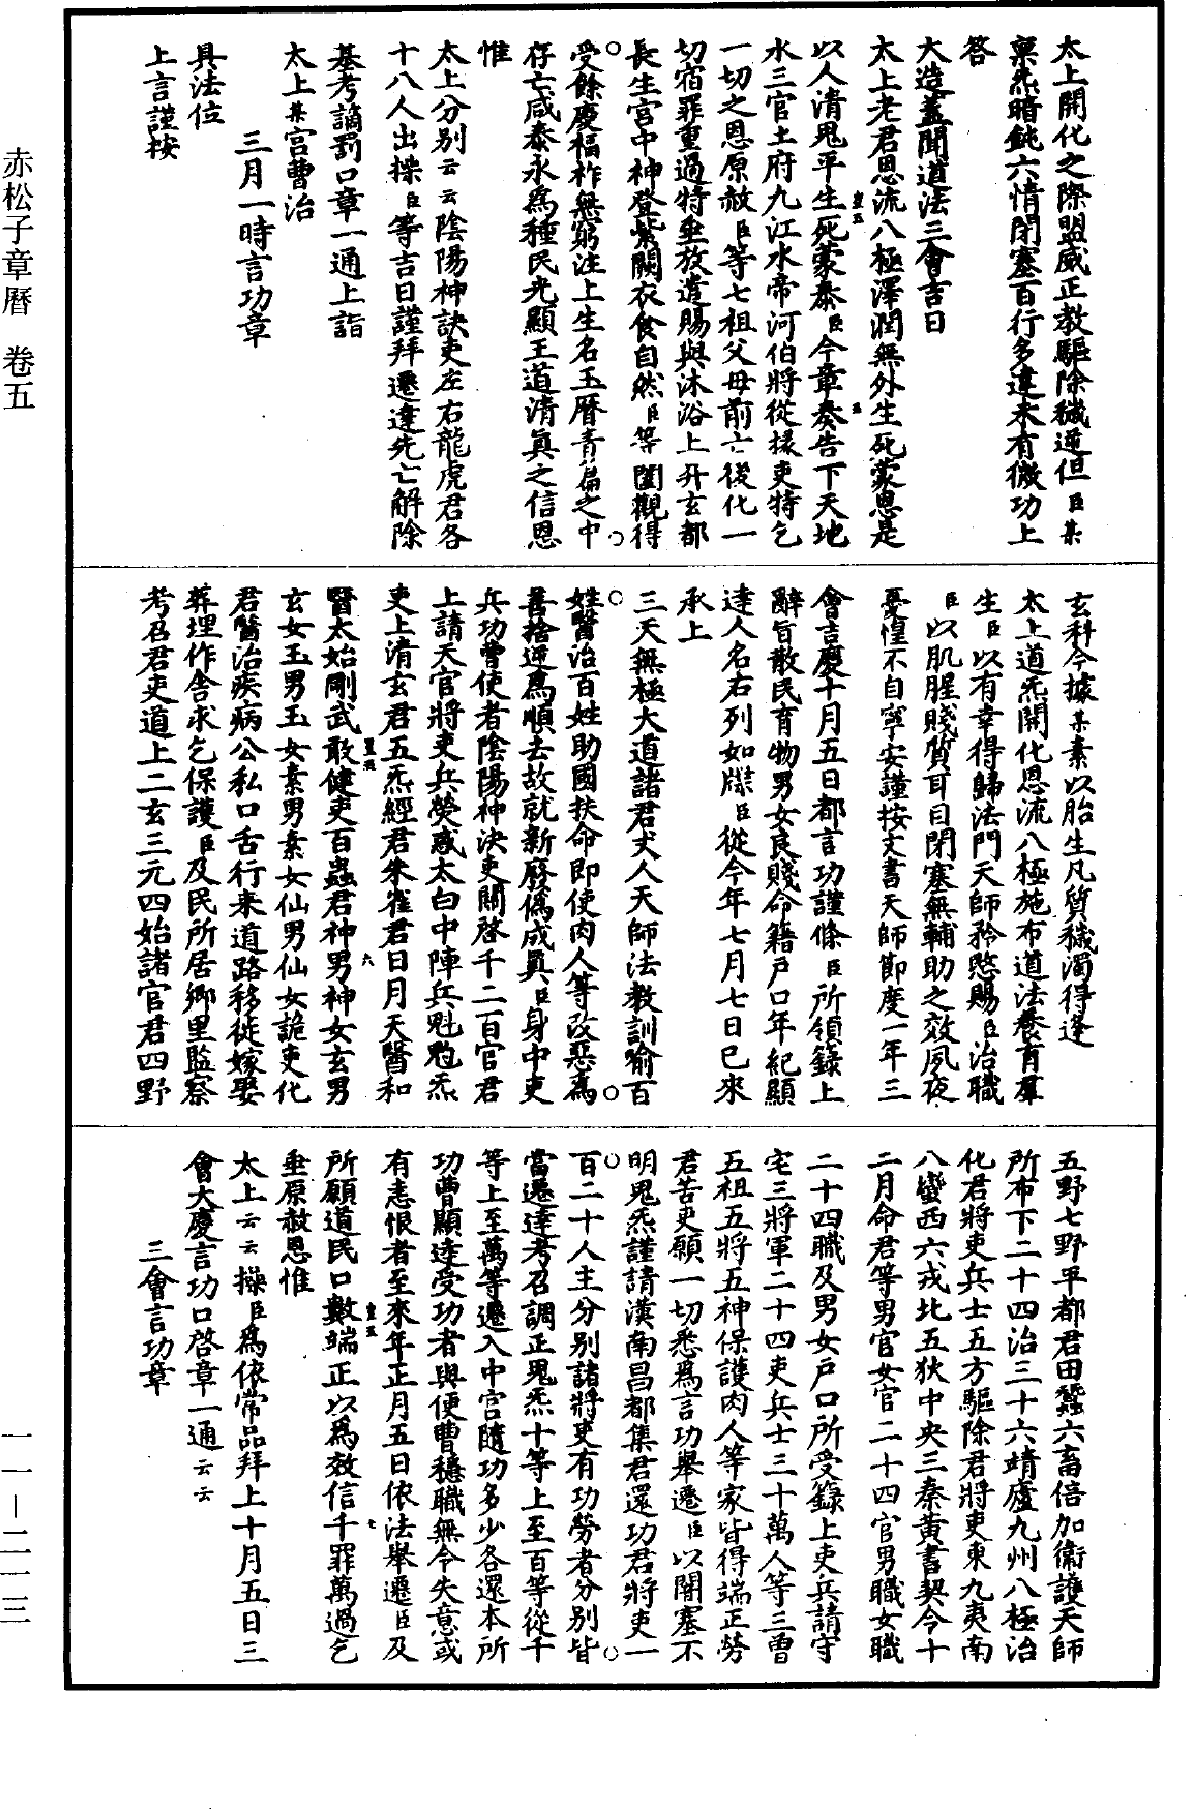 太上開化之際盟威正教驅除穢逆但臣某
稟炁暗鈍六情閉塞百行多違未有微功上
答
大造蓋聞道法三會吉日
太上老君恩流八極澤潤無外生死蒙恩是
以人清鬼平生死蒙泰臣今章奏告下天地
水三官土府九江水帝河伯將從掾吏特乞
一切之恩原赦臣等七祖父母前亡後化一
切宿罪重過特垂放遣賜與沐浴上升玄都
長生宮中神登紫闕衣食自然臣等闔觀得
受餘慶福祚無窮注上生名玉曆青篇之中
存亡咸泰永為種民光顯王道清真之信恩
惟
太上分別云云陰陽神訣吏左右龍虎君各
十八人出操臣等吉日謹拜遷達先亡解除
基考謫罰口章一通上詣
太上某宮曹治
三月一時言功章
具法位
上言謹按
玄科今據某素以胎生凡質穢濁得逢
太上道炁開化恩流八極施布道法養育羣
生臣以有幸得歸法門天師矜愍賜臣治職
臣以肌腥賤質耳目閉塞無輔助之效夙夜
憂惶不自寧安謹按文書天師節度一年三
會吉慶十月五日都言功謹條臣所領籙上
辭旨散民育物男女良賤命籍戶口年紀顯
達人名右列如牒臣從今年七月七日已來
承上
三天無極大道諸君丈人天師法教訓喻百
姓醫治百姓助國扶命即使肉人等改惡為
善捨逆為順去故就新廢偽成真臣身中吏
兵功曹使者陰陽神決吏關啓千二百官君
上請天官將吏兵熒惑太白中陣兵魁魁炁
吏上清玄君五炁經君朱雀君日月天醫和
醫太始剛武敢健吏百蟲君神男神女玄男
玄女玉男玉女素男素女仙男仙女詭吏化
君醫治疾病公私口舌行來道路移徙嫁娶
葬埋作舍求乞保護臣及民所居鄉里監察
考召君吏道上二玄三元四始諸官君四野
五野七野平都君田蠶六畜倍加衞護天師
所布下二十四治三十六靖廬九州八極治
化君將吏兵士五方驅除君將吏東九夷南
八蠻西六戎北五狄中央三秦黃書契令十
二月命君等男官女官二十四官男職女職
二十四職及男女戶口所受籙上吏兵請守
宅三將軍二十四吏兵士三十萬人等三曾
五祖五將五神保護肉人等家皆得端正勞
君苦吏願一切悉為言功舉遷臣以關塞不
明鬼炁謹請漢南昌都集君還功君將吏一
百二十人主分別諸將吏有功勞者分別皆
當遷達考召調正鬼炁十等上至百等從千
等上至萬等遷入中宮隨功多少各還本所
功曹顯達受功者與便曹穩職無令失意或
有恚恨者至來年正月五日依法舉遷臣及
所願道民口數端正以為效信千罪萬過乞
垂原赦恩惟
太上云云操臣為依常品拜上十月五日三
會大慶言功口啓章一通云云
三會言功章
赤松子章曆 卷五
一一—二一三